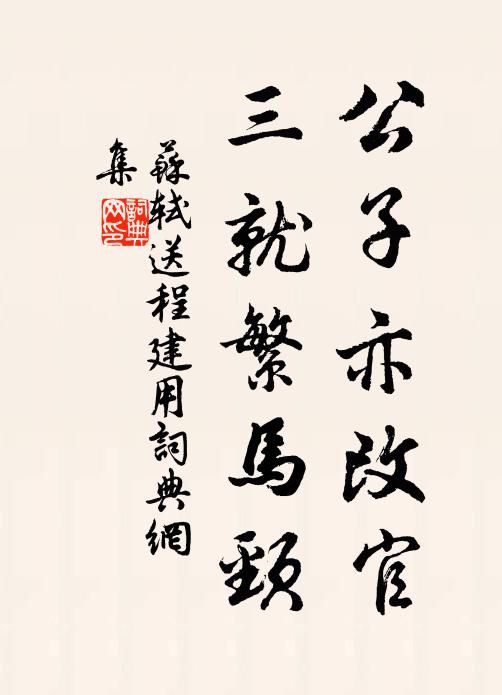 公子亦改官
三就繁馬頸
蘇軾送程建用詞典網
集
詞典
网印